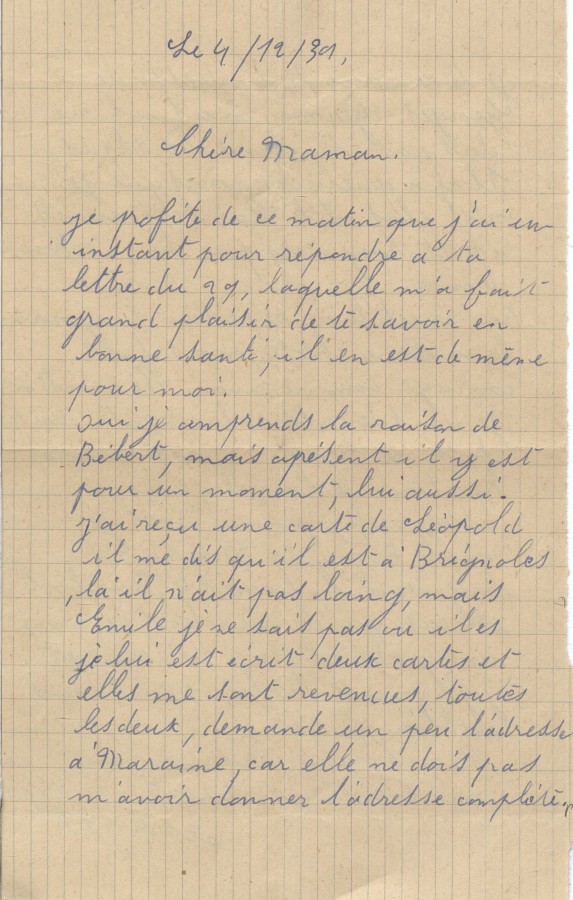 Le 4/12/39,
Chère Maman.
je profite de ce matin que j'ai un
instant pour répendre a ta
lettre du 29, laquelle m'a fait
grand plaisir de te savoir en
bonne santé, il en est de même
pour moi.
Oui je comprends la raison de
Bébert, mais apésent il y est
pour un moment, lui aussi.
J'ai reçu une carte de Léopold
il me dis qu'il est à Brignoles
, là il n'ait pas loing, mais
Emile je ne sais pas ou il es
je lui est écrit deux cartes et
elles me sont revenues, toutes
les deux, demande un peu l'adresse
à Maraine, car elle ne dois pas
m'avoir donner l'adresse complète.